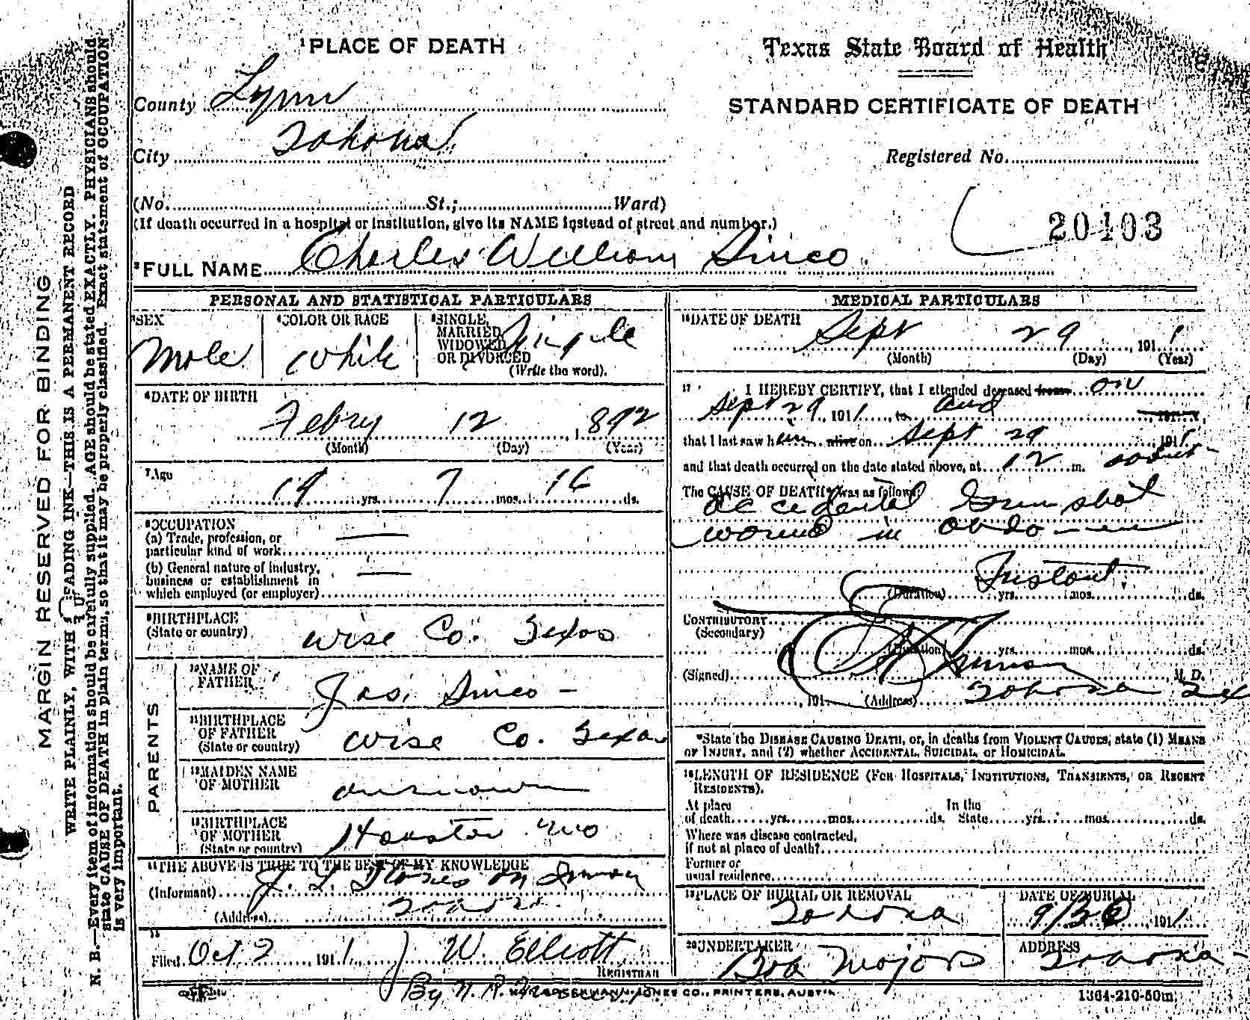 ¹PLACE OF DEATH
County Lynn
City Tahoka
(No. St.; Ward)
(If death occurred in a hospital or institution, give its NAME instead of street and number.)
Texas State Board of Health
STANDARD CERTIFICATE OF DEATH
Registered No.
20403
²FULL NAME Charles William Simco
MARGIN RESERVED FOR BINDING
WRITE PLAINLY, WITH UNFADING INK—THIS IS A PERMANENT RECORD
N. B.—Every item of information should be carefully supplied. AGE should be stated EXACTLY. PHYSICIANS should
state CAUSE OF DEATH in plain terms, so that it may be properly classified. Exact statement of OCCUPATION
is very important.
PERSONAL AND STATISTICAL PARTICULARS
³SEX
Male
⁴COLOR OR RACE
White
⁵SINGLE,
MARRIED
WIDOWED
OR DIVORCED
Single
(Write the word).
⁶DATE OF BIRTH
Febry 12, 1892
(Month) (Day) (Year)
⁷Age
19 yrs. 7 mos. 16 ds.
⁸OCCUPATION
(a) Trade, profession, or
particular kind of work
(b) General nature of industry,
business or establishment in
which employed (or employer)
⁹BIRTHPLACE
(State or country)
Wise Co. Texas
PARENTS
¹⁰NAME OF
FATHER
Jas. Simco
¹¹BIRTHPLACE
OF FATHER
(State or country)
Wise Co. Texas
¹²MAIDEN NAME
OF MOTHER
unknown
¹³BIRTHPLACE
OF MOTHER
(State or country)
Houston Mo
¹⁴THE ABOVE IS TRUE TO THE BEST OF MY KNOWLEDGE
(Informant) J. L. Stokes or Inmon
(Address)
¹⁵
Filed Oct 2, 1911 J W. Elliott
REGISTRAR
By
MEDICAL PARTICULARS
¹⁶DATE OF DEATH
Sept 29, 1911
(Month) (Day) (Year)
¹⁷ I HEREBY CERTIFY, that I attended deceased from on
Sept 29, 1911, to and
that I last saw him alive on Sept 29 1911
and that death occurred on the date stated above, at 12 m.
The CAUSE OF DEATH* was as follows:
accidental Gun shot
wound in abdomen
Instant.
(Duration) yrs. mos. ds.
CONTRIBUTORY
(Secondary)
(Duration) yrs. mos. ds.
(Signed) Inmon M. D.
, 191 (Address) Tahoka Tex
*State the DISEASE CAUSING DEATH, or, in deaths from VIOLENT CAUSES, state (1) MEANS
OF INJURY, and (2) whether ACCIDENTAL, SUICIDAL, or HOMICIDAL.
¹⁸LENGTH OF RESIDENCE (FOR HOSPITALS, INSTITUTIONS, TRANSIENTS, OR RECENT
RESIDENTS).
At place In the
of death yrs. mos. ds. State yrs. mos. ds.
Where was disease contracted,
if not at place of death?
Former or
usual residence
¹⁹PLACE OF BURIAL OR REMOVAL
Tahoka
DATE OF BURIAL
9/30, 1911
²⁰UNDERTAKER
Bob Majors
ADDRESS
Tahoka
JONES CO., PRINTERS, AUSTIN.
1364-210-50m.